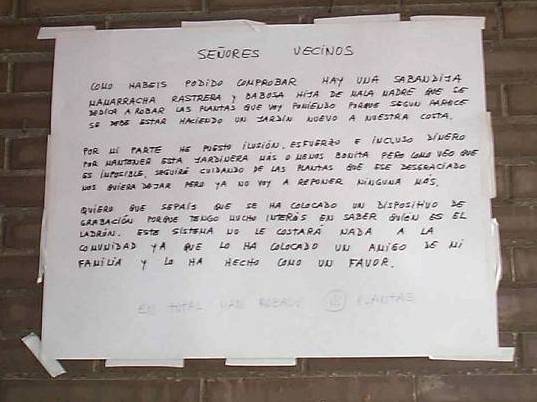 SEÑORES VECINOS
COMO HABEIS PODIDO COMPROBAR HAY UNA SABANDIJA
MAMARRACHA RASTRERA Y BABOSA HIJA DE MALA MADRE QUE SE
DEDICA A ROBAR LAS PLANTAS QUE VOY PONIENDO PORQUE SEGUN PARECE
SE DEBE ESTAR HACIENDO UN JARDÍN NUEVO A NUESTRA COSTA.
POR MI PARTE HE PUESTO ILUSIÓN, ESFUERZO E INCLUSO DINERO
POR MANTENER ESTA JARDINERA MÁS O MENOS BONITA PERO COMO VEO QUE
ES IMPOSIBLE, SEGUIRÉ CUIDANDO DE LAS PLANTAS QUE ESE DESGRACIADO
NOS QUIERA DEJAR PERO YA NO VOY A REPONER NINGUNA MÁS.
QUIERO QUE SEPAIS QUE SE HA COLOCADO UN DISPOSITIVO DE
GRABACIÓN PORQUE TENGO MUCHO INTERÉS EN SABER QUIÉN ES EL
LADRÓN. ESTE SISTEMA NO LE COSTARÁ NADA A LA
COMUNIDAD YA QUE LO HA COLOCADO UN AMIGO DE MI
FAMILIA Y LO HA HECHO COMO UN FAVOR.
EN TOTAL HAN ROBADO PLANTAS